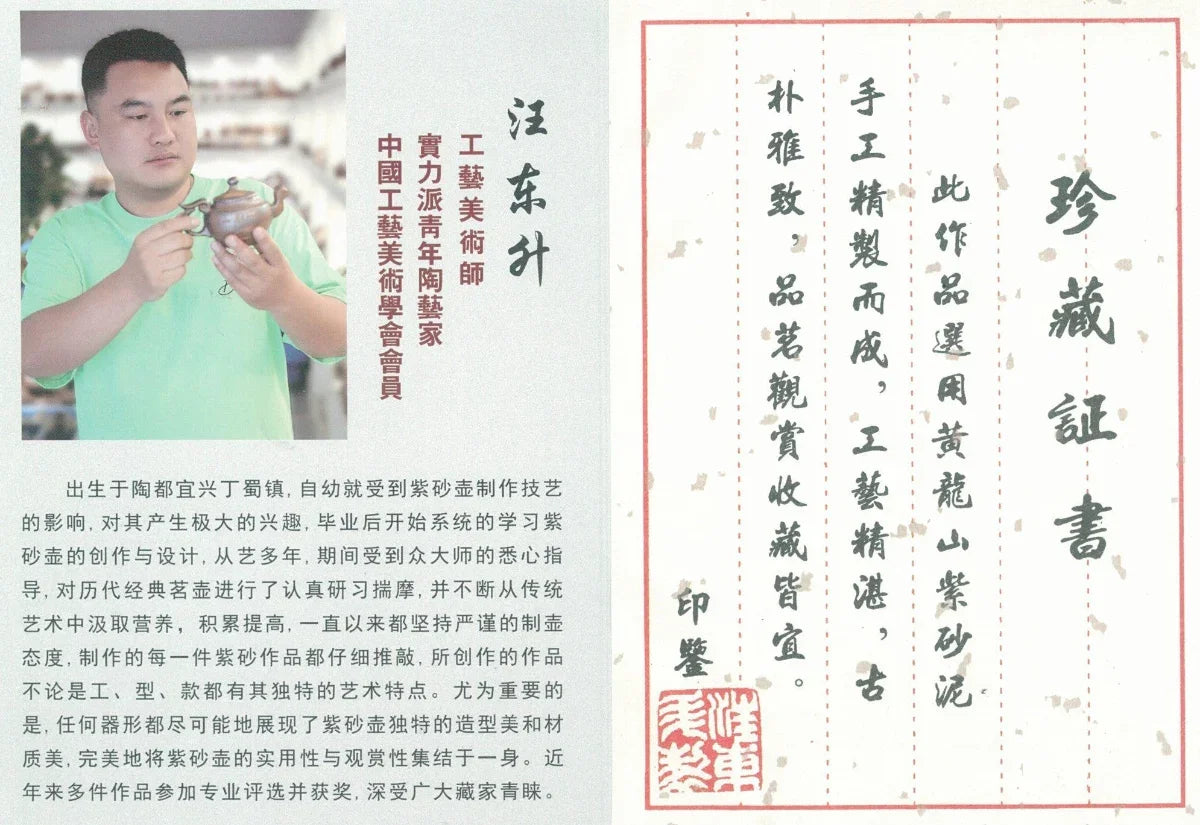 汪东升
工藝美術師
實力派青年陶藝家
中國工藝美術學會會員
出生于陶都宜兴丁蜀镇,自幼就受到紫砂壶制作技艺
的影响,对其产生极大的兴趣,毕业后开始系统的学习紫
砂壶的创作与设计,从艺多年,期间受到众大师的悉心指
导,对历代经典茗壶进行了认真研习揣摩,并不断从传统
艺术中汲取营养，积累提高,一直以来都坚持严谨的制壶
态度,制作的每一件紫砂作品都仔细推敲,所创作的作品
不论是工、型、款都有其独特的艺术特点。尤为重要的
是,任何器形都尽可能地展现了紫砂壶独特的造型美和材
质美,完美地将紫砂壶的实用性与观赏性集结于一身。近
年来多件作品参加专业评选并获奖,深受广大藏家青睐。
珍藏証書
此作品選用黃龍山紫砂泥
手工精製而成，工藝精湛，古
朴雅致，品茗觀賞收藏皆宜。
印鑒
汪東
升製